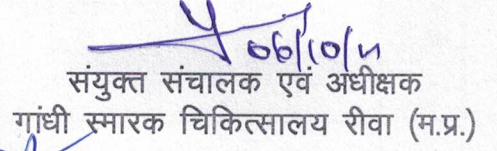 06/10/11
संयुक्त संचालक एवं अधीक्षक
गांधी स्मारक चिकित्सालय रीवा (म.प्र.)